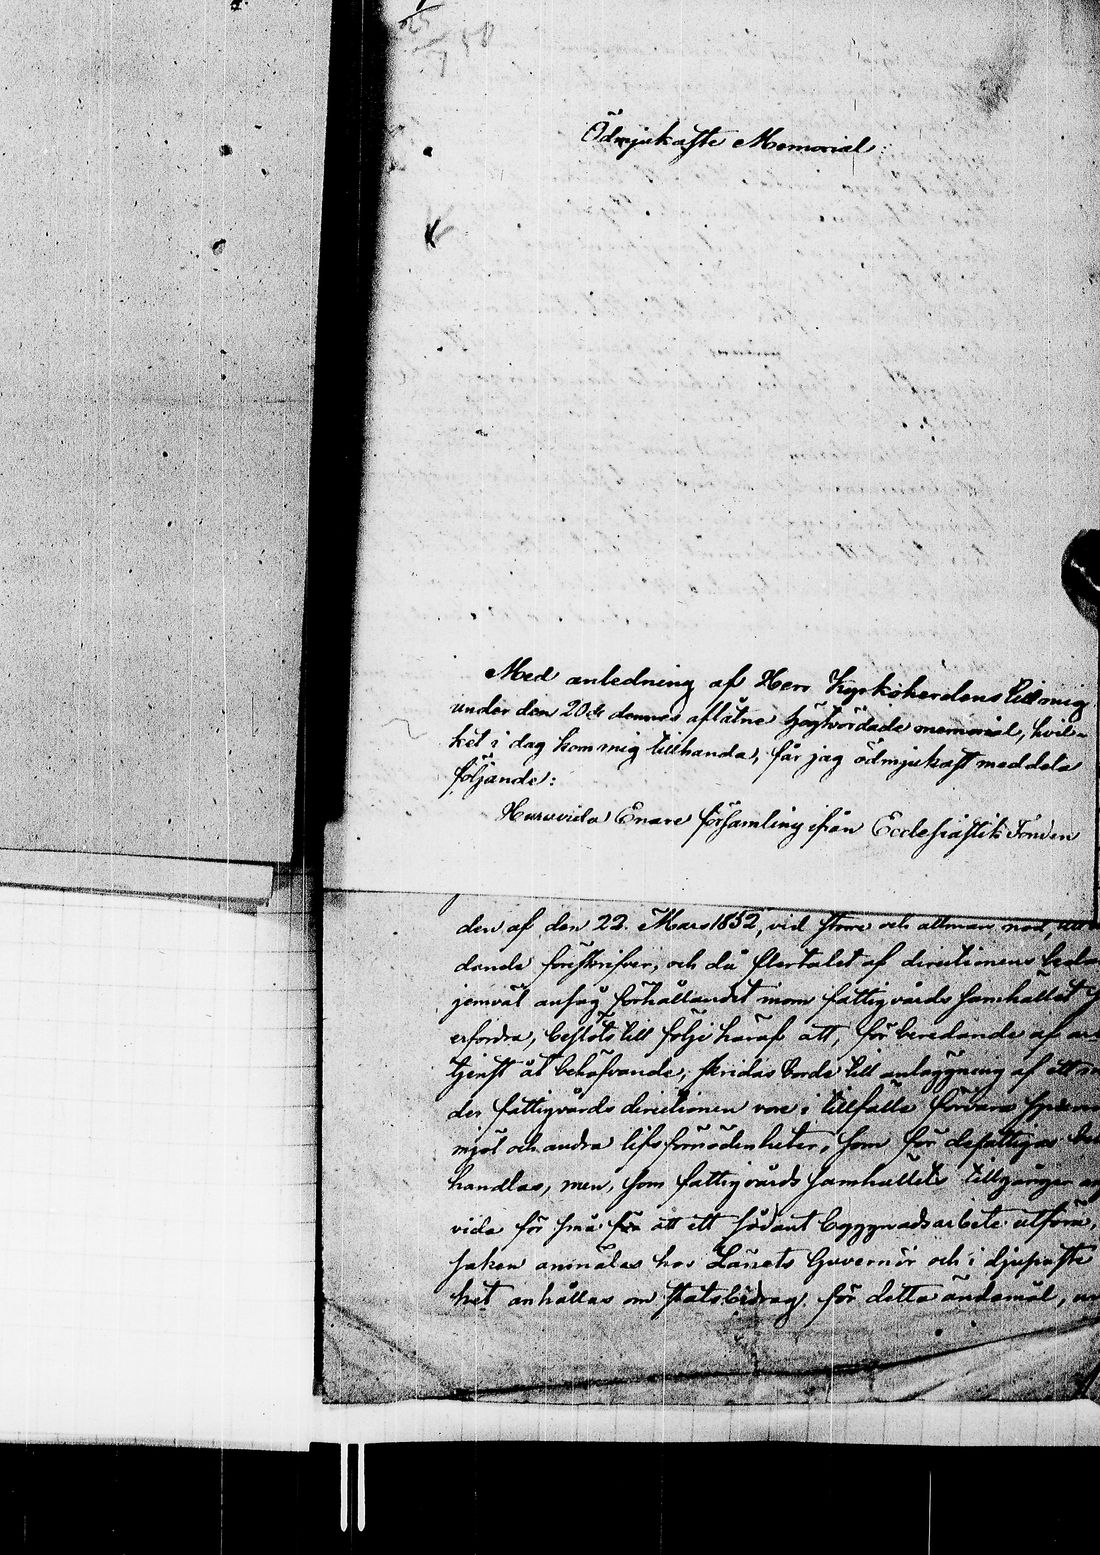 25/7 50
Ödmjukaste Memorial:
Med anledning af Herr Kyrkoherdens till mig
under den 20de dennes aflåtne högtvördade memorial, hvil-
ket i dag kom mig tillhanda, får jag ödmjukast meddela
följande:
Huruvida Enare församling ifrån Ecclesiastik Fonden
den af den 22 Mars 1852, vid större och allmän nöd,
dande föreskrifver, och då flertalet af directionens
jemväl ansåg förhållandet inom fattigvårds samhället
erfordra, beslöts till följe häraf att, för beredande af
tjenst åt behöfvande, skridas borde till anläggning af ett
der fattigvårds directionen vore i tillfälle förvara
mjöl och andra lifsförnödenheter, som för de fattiga
handlas, men, som fattigvårds samhällets tillgångar
vida för små för att ett sådant byggnadsarbete utföra,
saken anmälas hos Länets Guvernör och i djupaste
het anhållas om statsbidrag för detta ändamål,